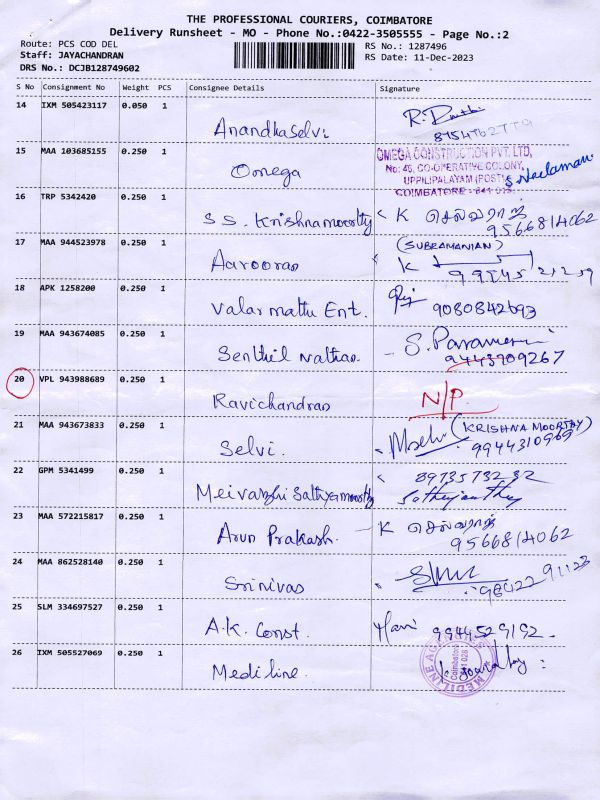 THE PROFESSIONAL COURIERS, COIMBATORE
Delivery Runsheet - MO - Phone No.:0422-3505555 - Page No.:2
Route: PCS COD DEL
RS No.: 1287496
Staff: JAYACHANDRAN
RS Date: 11-Dec-2023
DRS No.: DCJB128749602
S No Consignment No Weight PCS Consignee Details Signature
14 IXM 505423117 0.050 1 Anandhaselvi
15 MAA 103685155 0.250 1 Omega
OMEGA CONSTRUCTION PVT. LTD,
No: 45, CO-OPERATIVE COLONY,
UPPILIPALAYAM (POST),
COIMBATORE - 641 015.
16 TRP 5342420 0.250 1 S.S. Krishnamoorthy K செல்வராஜ்
9566814062
17 MAA 944523978 0.250 1 Aarooras (SUBRAMANIAN)
K
18 APK 1258200 0.250 1 Valarmathi Ent. 9080842693
19 MAA 943674085 0.250 1 Senthil Nathan - S.
9443709267
20 VPL 943988689 0.250 1 Ravichandran N/P.
21 MAA 943673833 0.250 1 Selvi. (KRISHNA MOORTHY)
9944310969
22 GPM 5341499 0.250 1 8973573232
23 MAA 572215817 0.250 1 Arun Prakash. - K செல்வராஜ்
9566814062
24 MAA 862528140 0.250 1 Srinivas 9842291123
25 SLM 334697527 0.250 1 A.K. Const. Hari 9944529192.
26 IXM 505527069 0.250 1 Mediline.